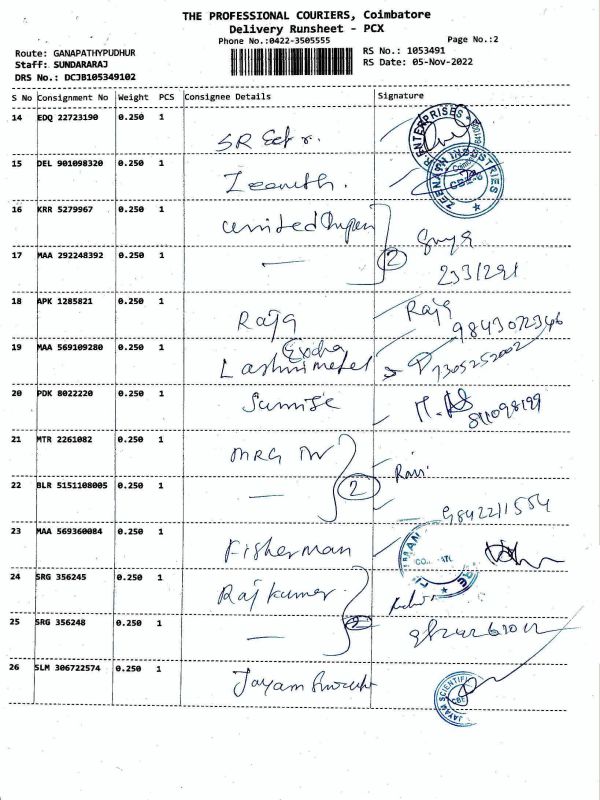 THE PROFESSIONAL COURIERS, Coimbatore
Delivery Runsheet - PCX
Phone No.:0422-3505555
Page No.:2
Route: GANAPATHYPUDHUR
RS No.: 1053491
Staff: SUNDARARAJ
RS Date: 05-Nov-2022
DRS No.: DCJB105349102
S No Consignment No Weight PCS Consignee Details Signature
14 EDQ 22723190 0.250 1 SR
ENTERPRISES
15 DEL 901098320 0.250 1 Zeenith.
ZEENATH INDUSTRIES
16 KRR 5279967 0.250 1 United
17 MAA 292248392 0.250 1 — 2
233/291
18 APK 1285821 0.250 1 Raja Raja
9843072346
19 MAA 569109280 0.250 1 Lashmimetel
7305252002
20 PDK 8022220 0.250 1 Sunrise
21 MTR 2261082 0.250 1 MRG
22 BLR 5151108005 0.250 1 — 2
9842211554
23 MAA 569360084 0.250 1 Fisherman
24 SRG 356245 0.250 1 Rajkumar
25 SRG 356248 0.250 1 — 2
26 SLM 306722574 0.250 1 Jayam
JAYAM SCIENTIFIC